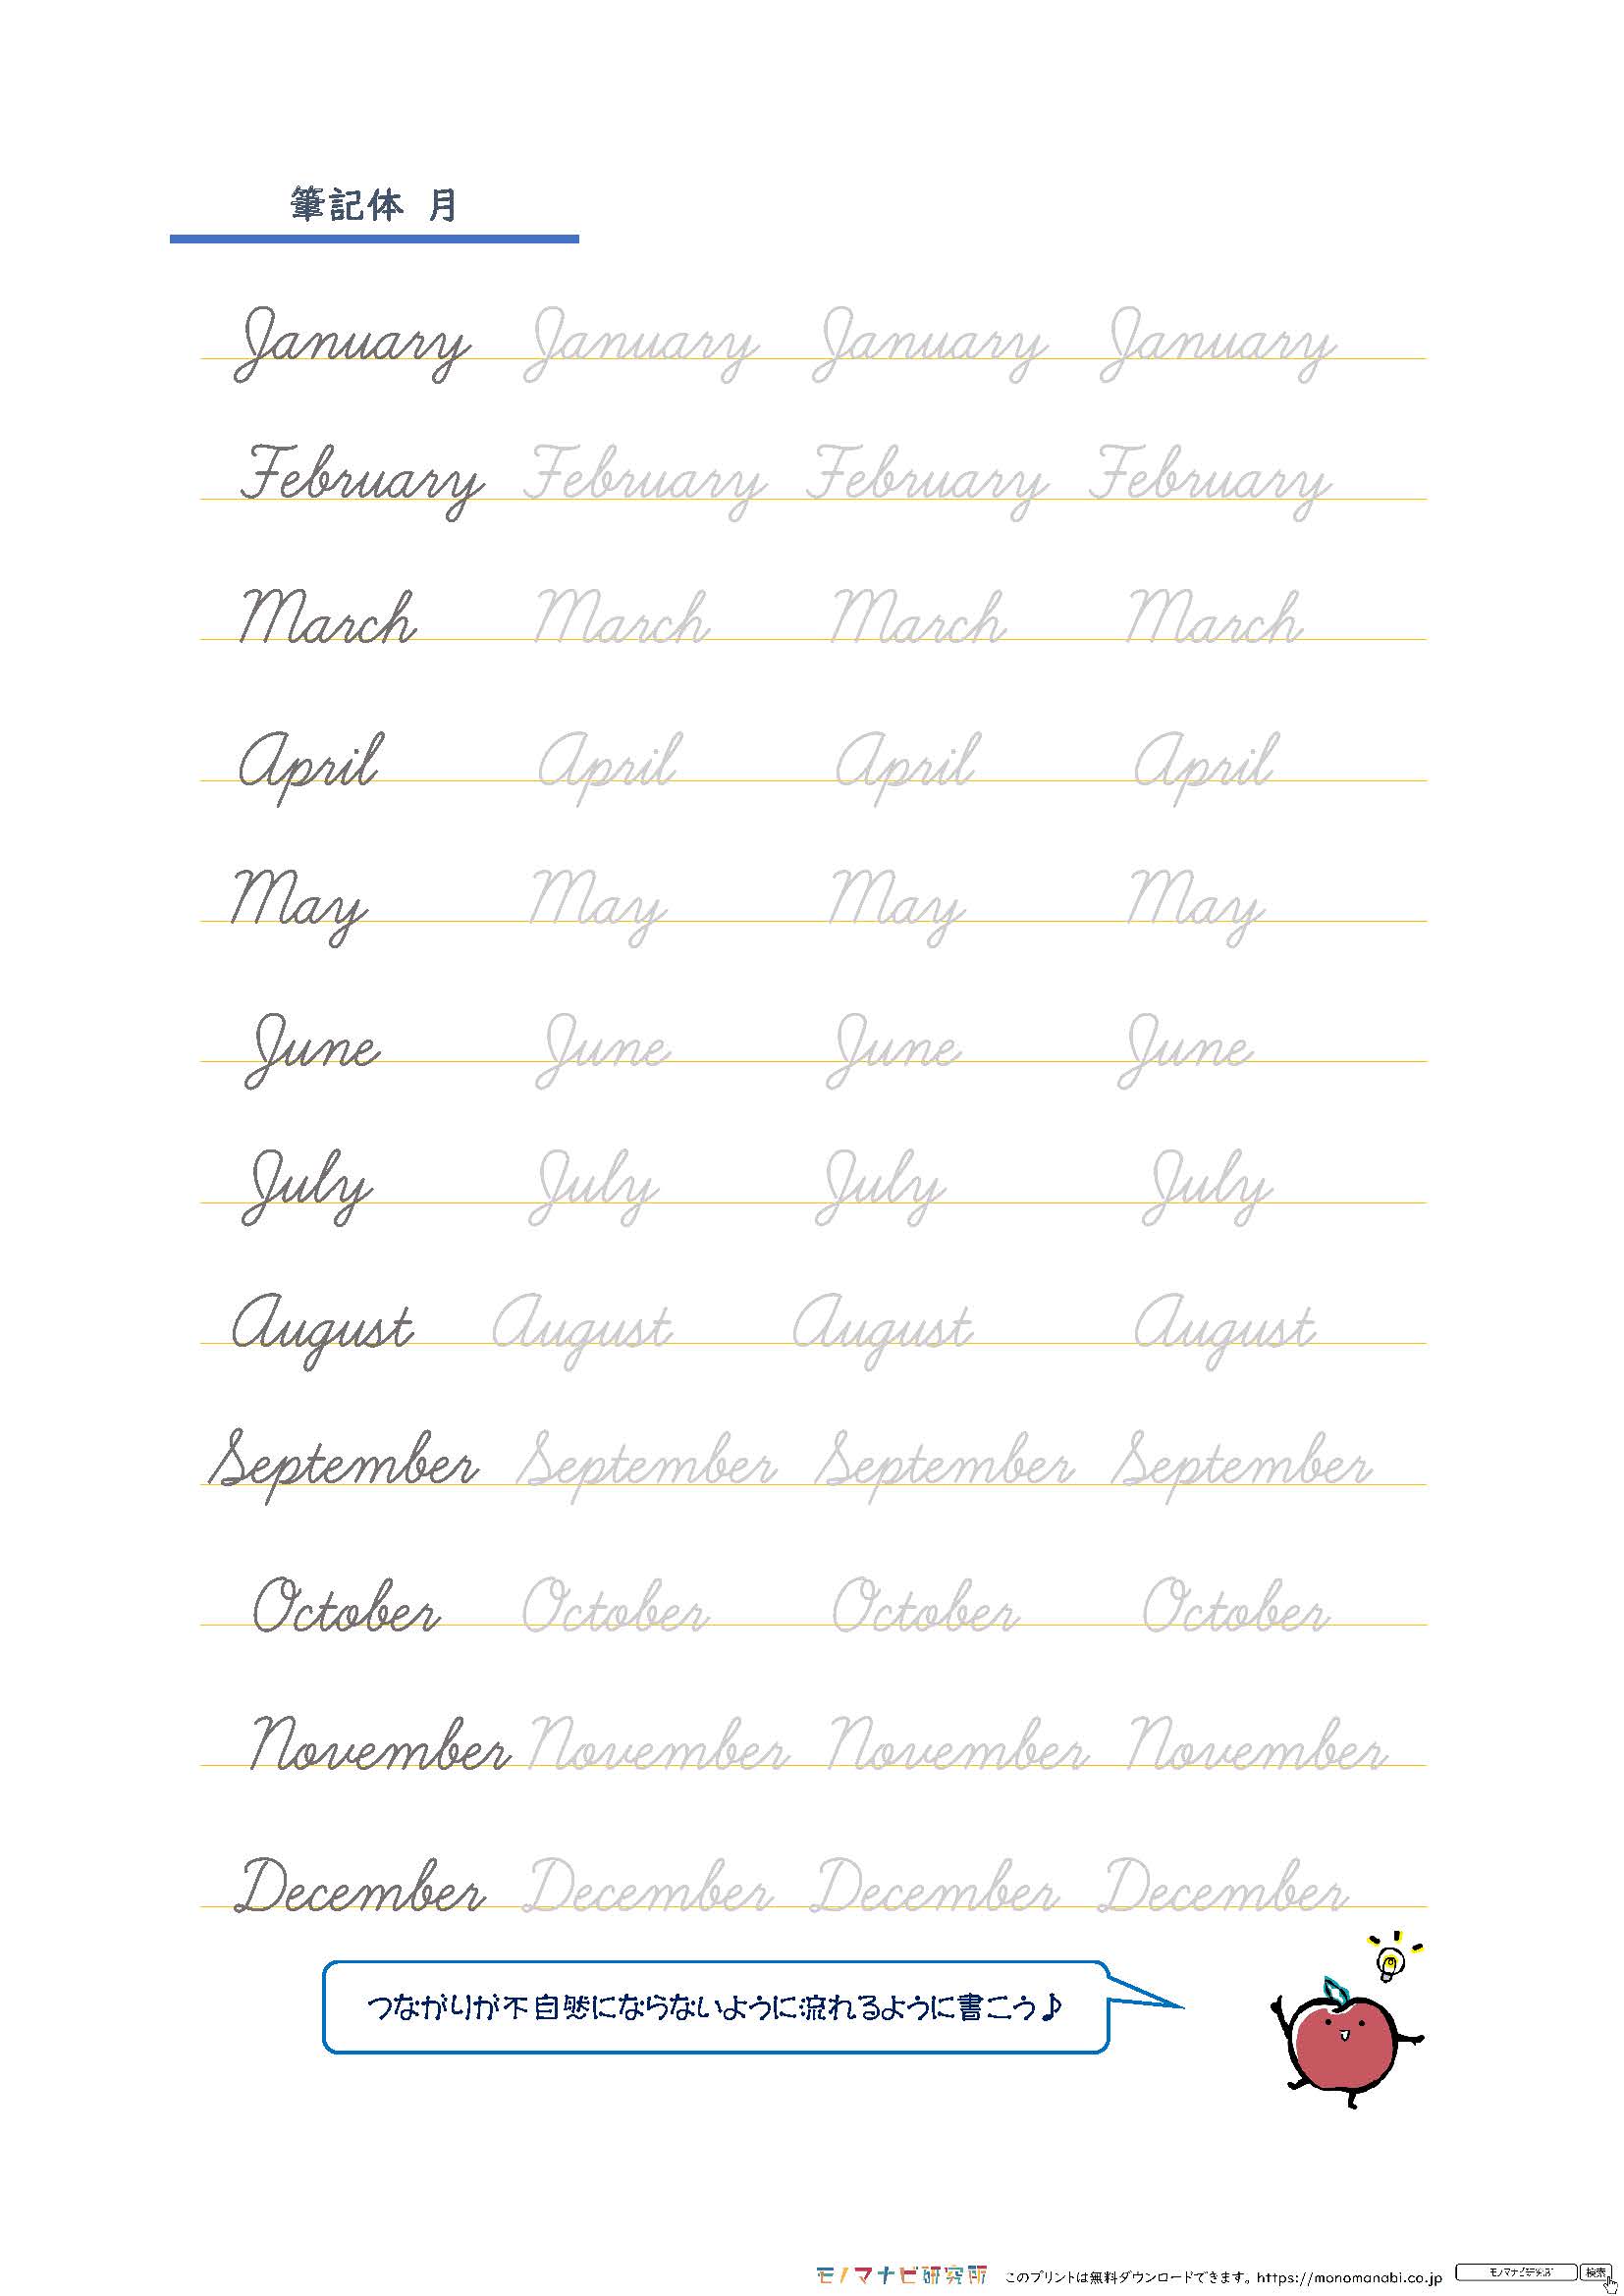 筆記体 月
January January January January
February February February February
March March March March
April April April April
May May May May
June June June June
July July July July
August August August August
September September September September
October October October October
November November November November
December December December December
つながりが不自然にならないように流れるように書こう♪
モノマナビ研究所 このプリントは無料ダウンロードできます。https://monomanabi.co.jp モノマナビ研究所 検索